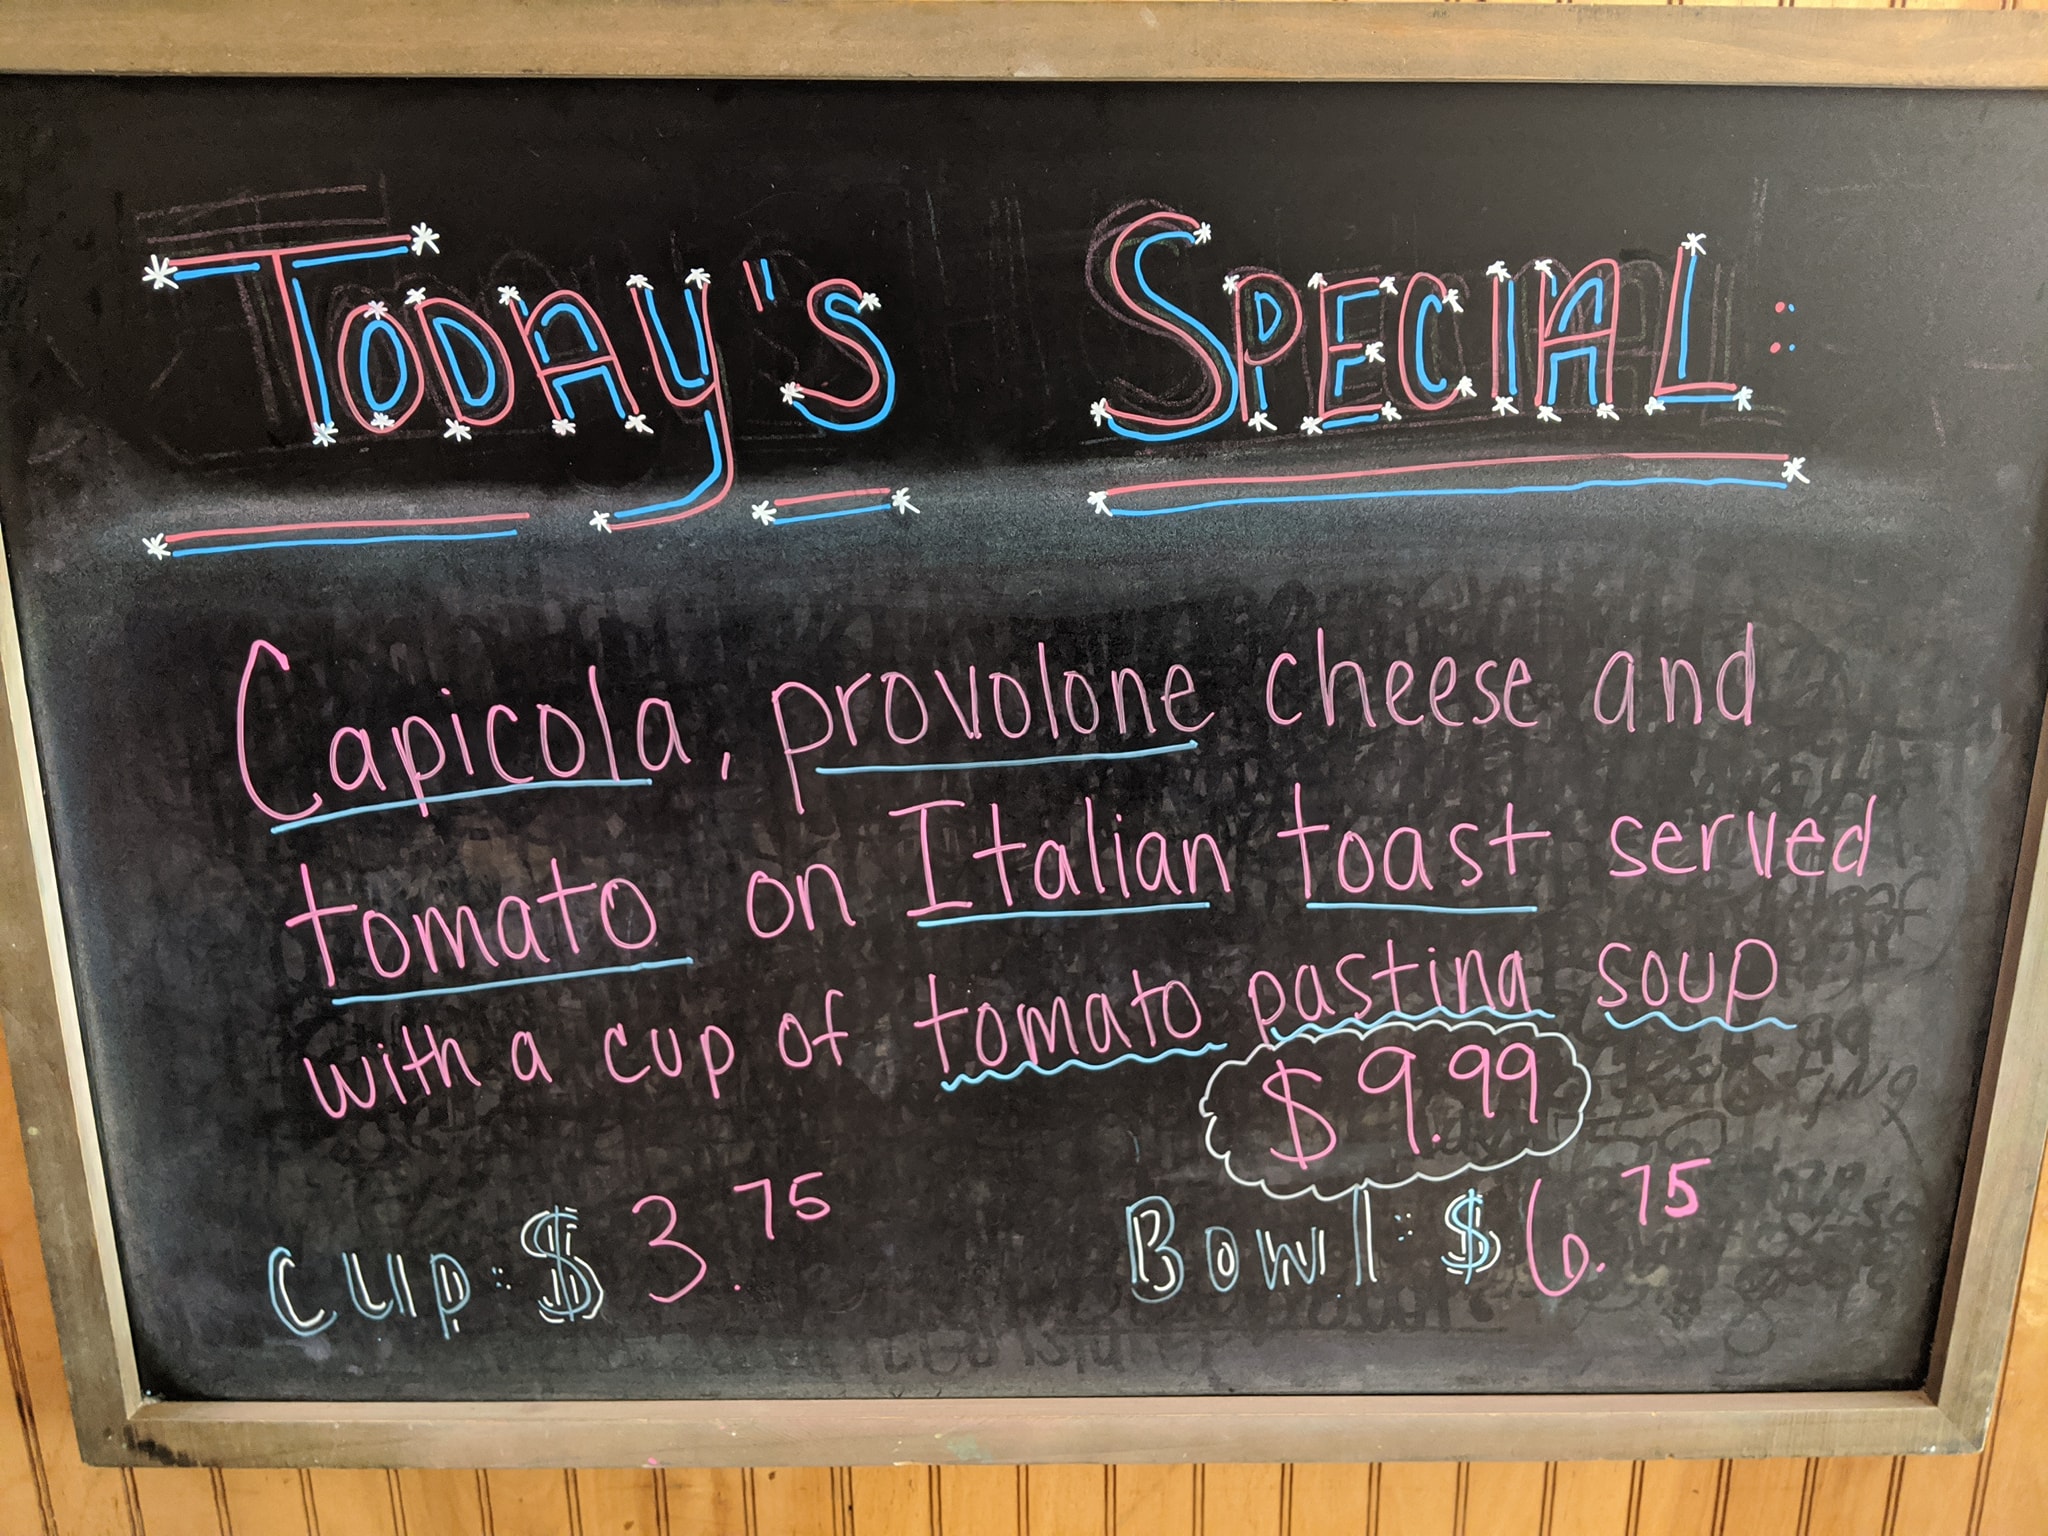 Today's Special:
Capicola, provolone cheese and
tomato on Italian toast served
with a cup of tomato pastina soup
$9.99
Cup: $3.75
Bowl: $6.75